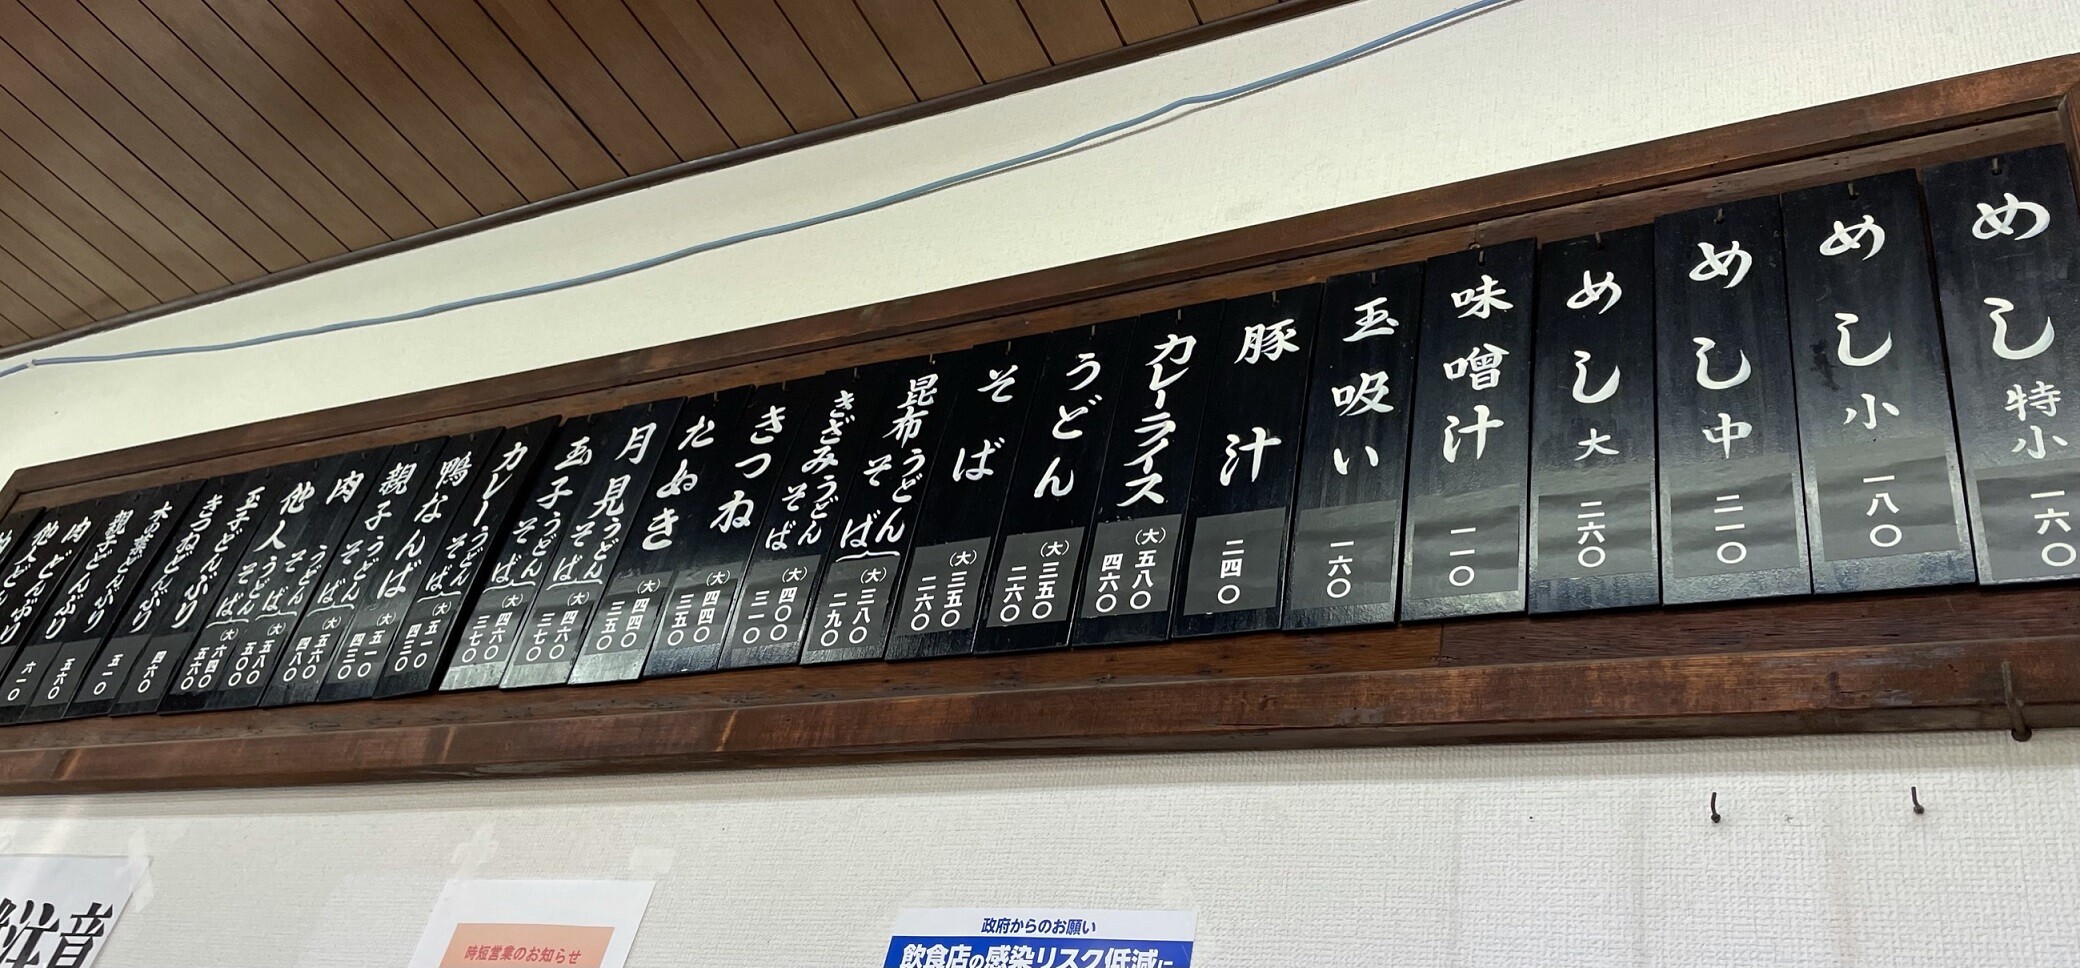 めし 特小 一六〇
めし 小 一八〇
めし 中 二一〇
めし 大 二六〇
味噌汁 一一〇
玉吸い 一六〇
豚汁 二四〇
カレーライス (大)五八〇 四六〇
うどん (大)三五〇 二六〇
そば (大)三五〇 二六〇
昆布うどんそば (大)三八〇 二九〇
きざみうどんそば (大)四〇〇 三一〇
きつね (大)四四〇 三五〇
たぬき (大)四四〇 三五〇
月見うどんそば (大)四六〇 三七〇
玉子うどんそば (大)四六〇 三七〇
カレーうどんそば (大)五一〇 四三〇
鴨なんば (大)五一〇 四三〇
親子うどんそば (大)五六〇 四八〇
肉うどんそば (大)五八〇 五〇〇
他人うどんそば (大)六四〇 五六〇
玉子どんぶり 四六〇
きつねどんぶり 五一〇
木の葉どんぶり 五六〇
親子どんぶり 六一〇
肉どんぶり
他人どんぶり
注意
時短営業のお知らせ
政府からのお願い
飲食店の感染リスク低減に